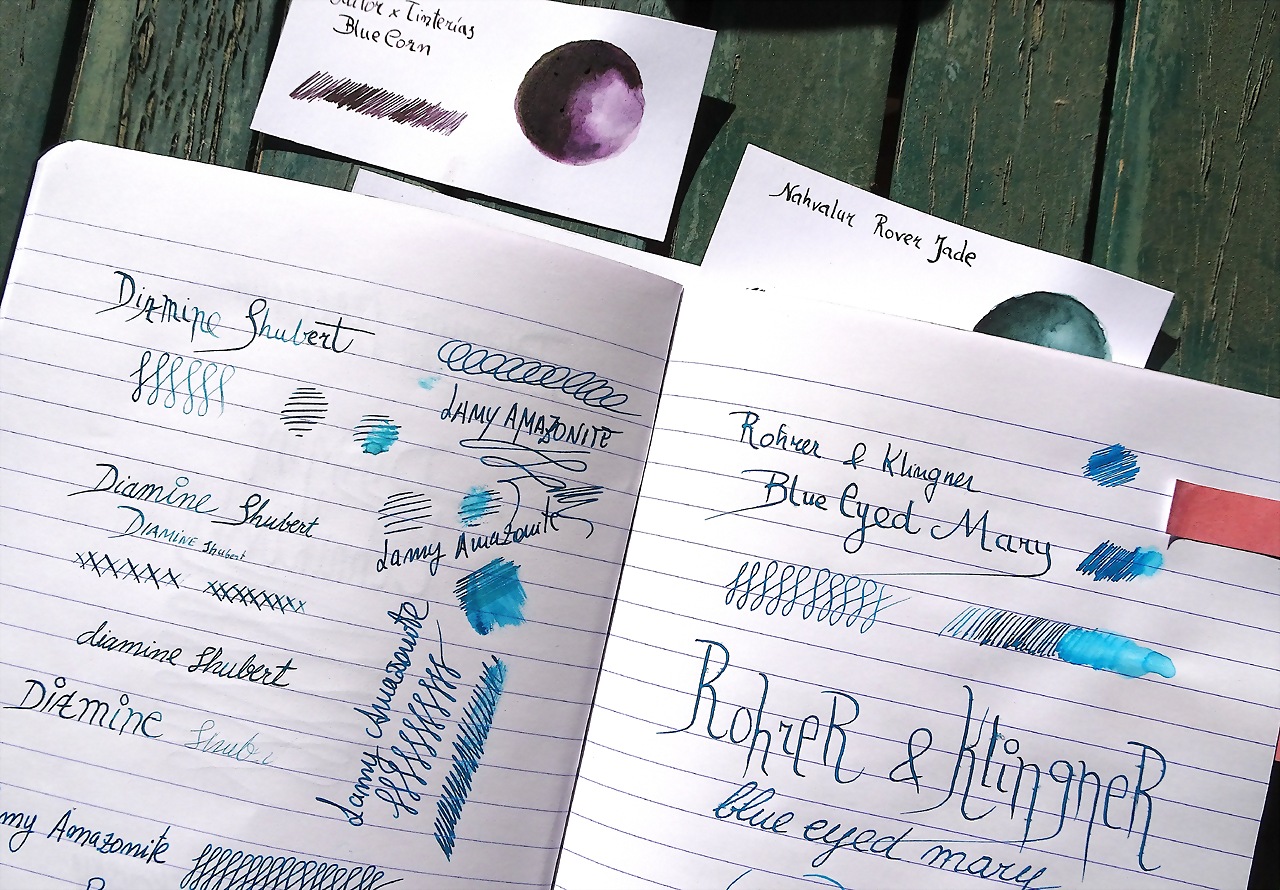 x Tinterías
Blue Corn
Nahvalur Rover Jade
Diamine Shubert
LAMY AMAZONITE
Diamine Shubert
Diamine Shubert
Lamy Amazonite
diamine Shubert
Diamine Shub
Lamy Amazonite
my Amazonite
Rohrer & Klingner
Blue Eyed Mary
Rohrer & Klingner
blue eyed mary